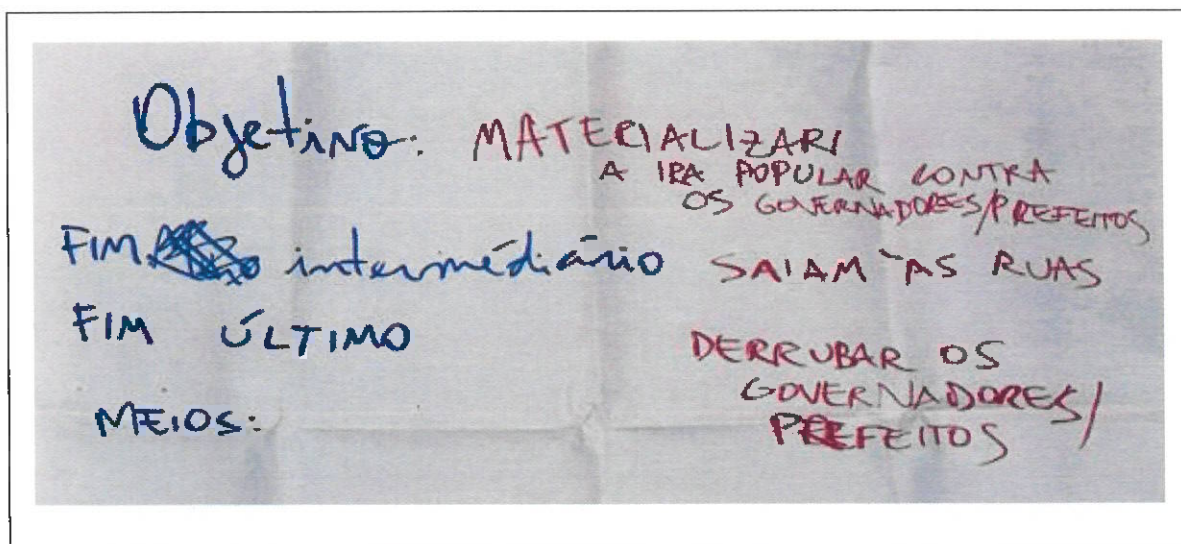 Objetivo: MATERIALIZAR
A IRA POPULAR CONTRA
OS GOVERNADORES/PREFEITOS
FIM intermédiário SAIAM ÀS RUAS
FIM ÚLTIMO DERRUBAR OS
GOVERNADORES/
PREFEITOS
MEIOS: